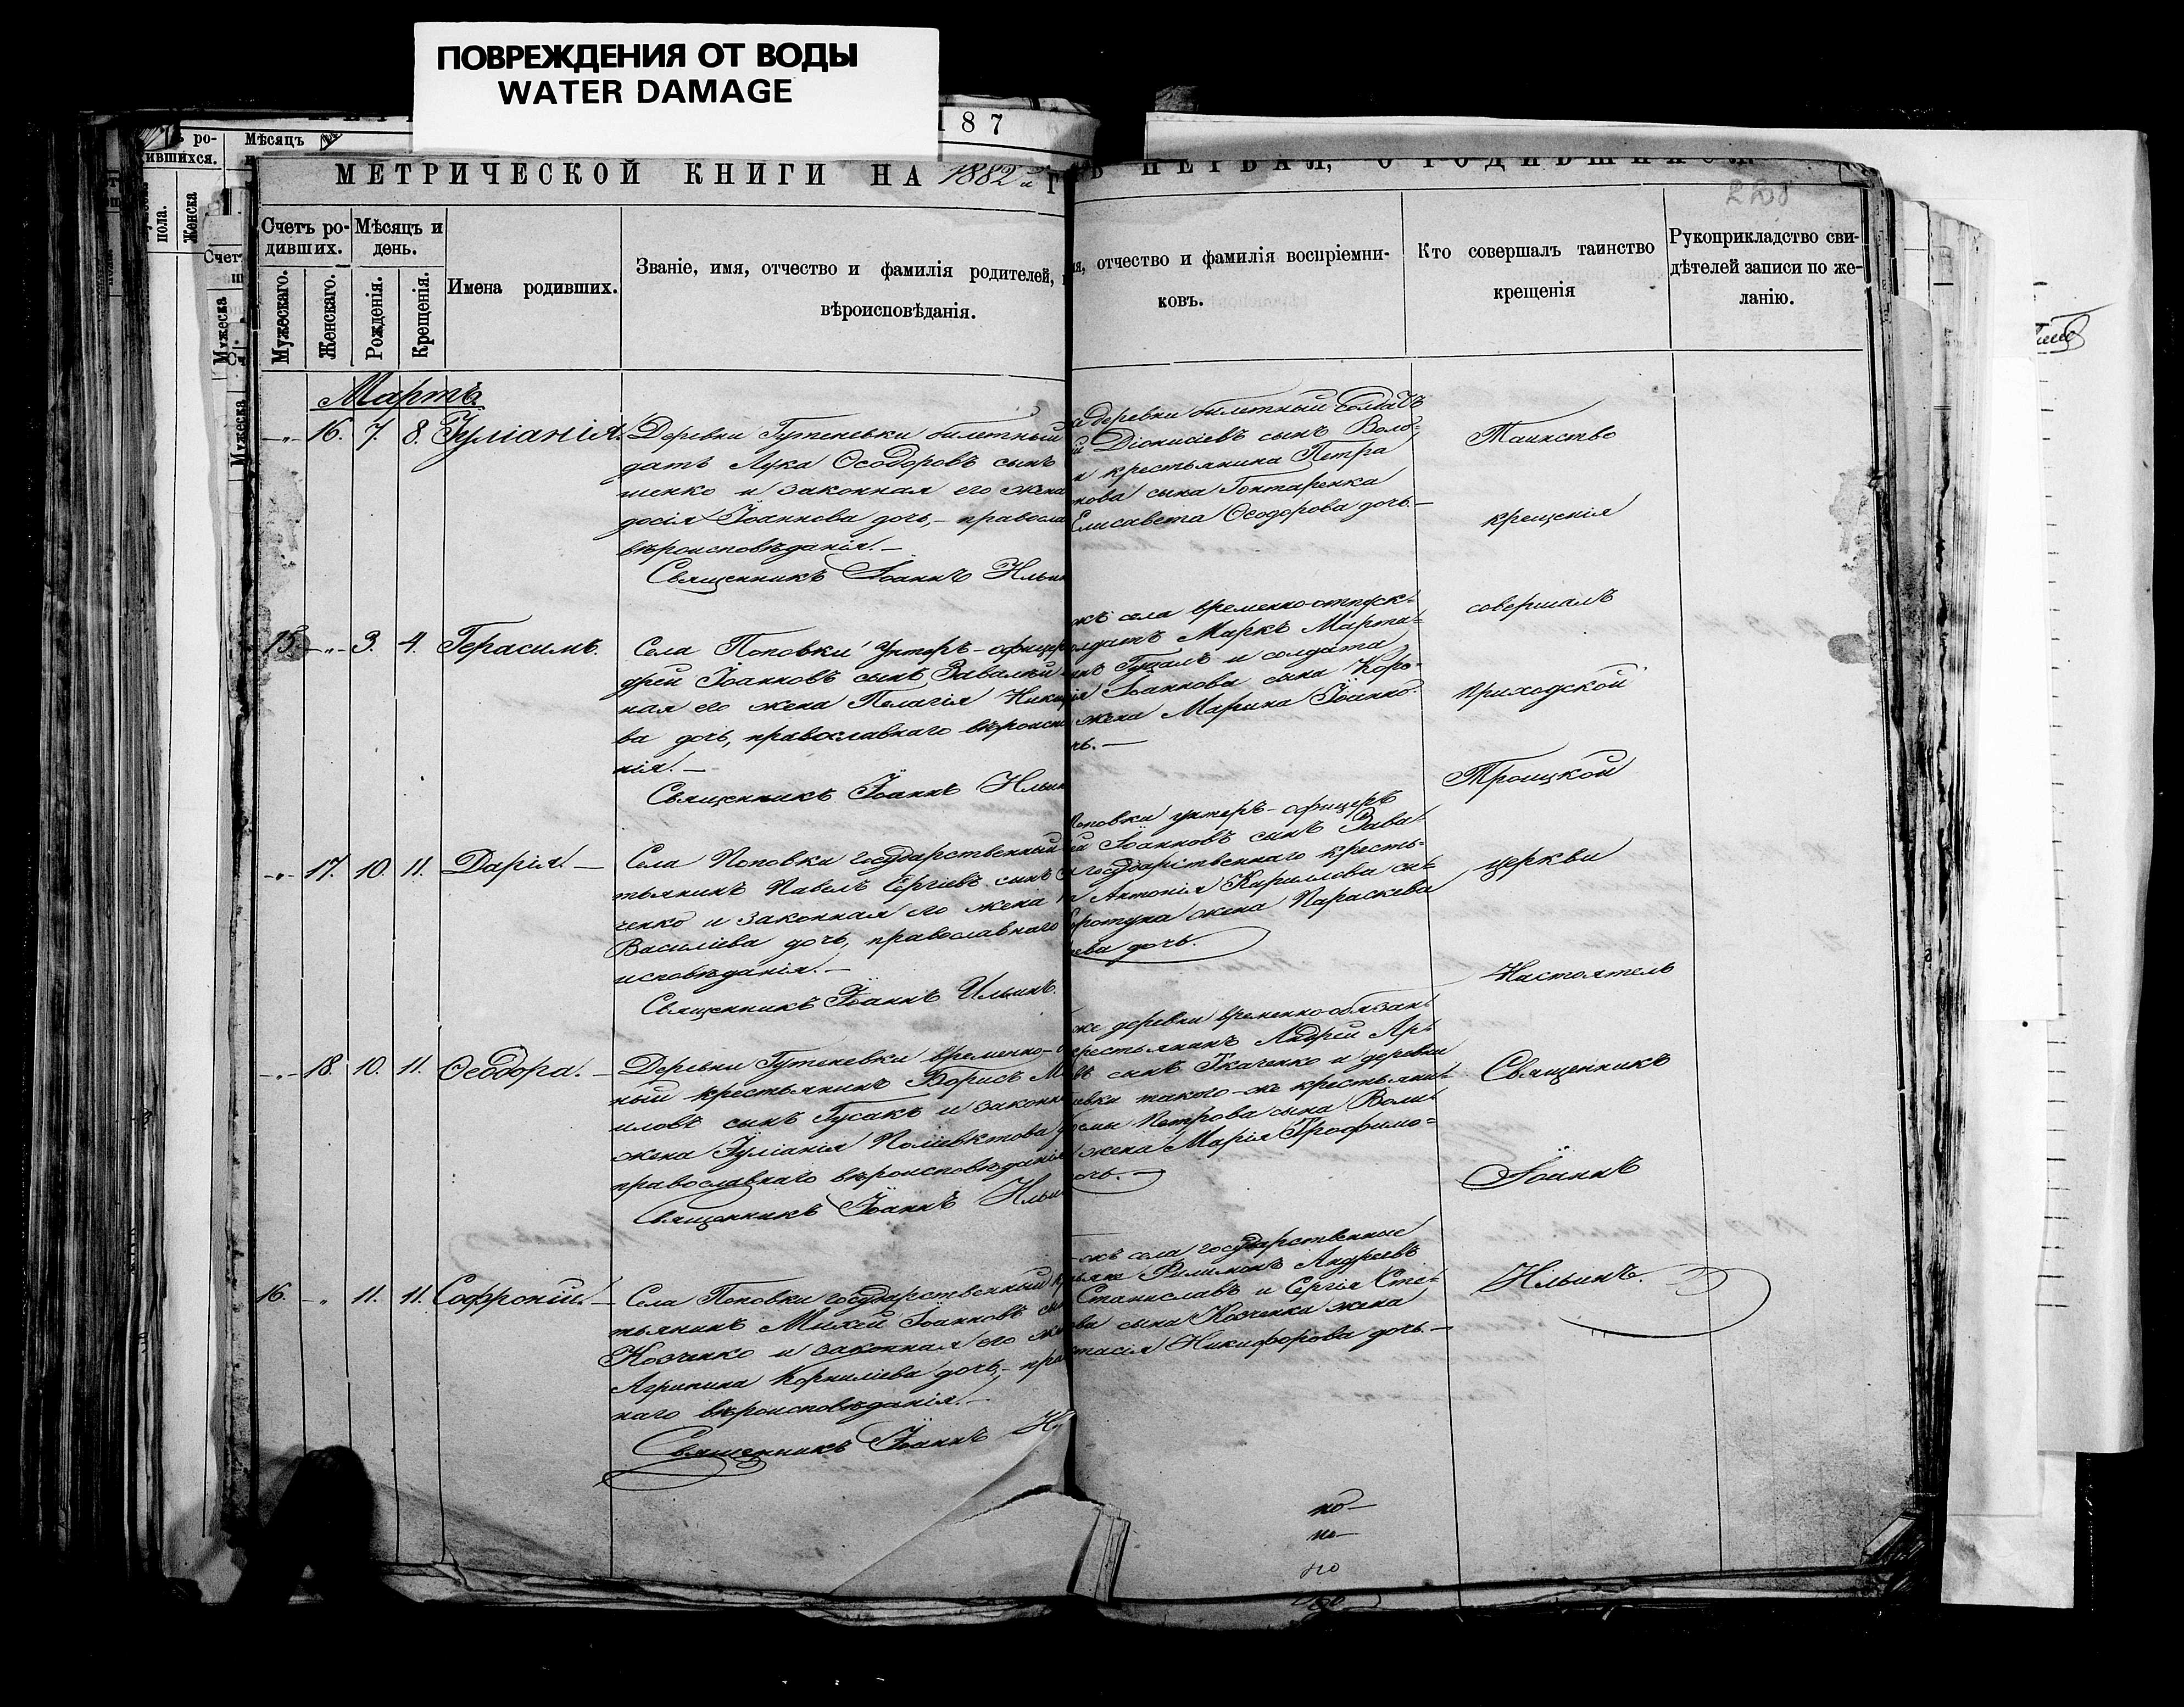 ПОВРЕЖДЕНИЯ ОТ ВОДЫ
WATER DAMAGE
187
МЕТРИЧЕСКОЙ КНИГИ НА 1882 й Г
Ъ ПЕРВАЯ, О РОДИВШИХСЯ
Счетъ ро-
дившихъ.
Мѣсяцъ и
день.
Мужескаго.
Женскаго.
Рожденія.
Крещенія.
Имена родившихъ.
Званіе, имя, отчество и фамилія родителей,
вѣроисповѣданія.
отчество и фамилія воспріемни-
ковъ.
Кто совершалъ таинство
крещенія
Рукоприкладство сви-
дѣтелей записи по же-
ланію.
Мартъ.
16. 7. 8. Іуліанія. Деревни Гутеневки билетный
датъ Лука Ѳеодоровъ сынъ
шенко и законная его жена
досія Іоаннова дочь, – правосла
вѣроисповѣданія. –
Священникъ Іоаннъ Ильин
деревни билетный солдатъ
й Діонисіевъ сынъ Воло-
крестьянина Петра
нова сына Гонтаренка
Елисавета Ѳеодорова дочь. –
15. 3. 4. Герасимъ. Села Поповки Унтеръ-офицер
дрей Іоанновъ сынъ Завалий
ная его жена Пелагія Никит
ва дочь, православнаго вѣроиспо
нія. –
Священникъ Іоаннъ Ильин
жъ села временно-отпуск-
солдатъ Маркъ Марти-
нъ Гусалъ и солдата
Іоаннова сына Коро-
жена Марина Іоанно-
чь. –
17. 10. 11. Дарія. – Села Поповки государственный
тьянинъ Павелъ Сергіевъ сынъ
ченко и законная его жена
Василіева дочь, православнаго
исповѣданія. –
Священникъ Іоаннъ Ильинъ.
Поповки унтеръ-офицеръ
й Іоанновъ сынъ Зава-
государственнаго кресть-
Антонія Кириллова сы
жена Параскева
ева дочь.
18. 10. 11. Ѳеодора. – Деревни Гутеневки временно-о
ный крестьянинъ Борисъ М
иловъ сынъ Гусакъ и законн
жена Іуліанія Поліевктова
православнаго вѣроисповѣданія
Священникъ Іоаннъ Ильи
же деревни временно-обязан-
крестьянинъ Андрей Ар-
въ сынъ Ткаченко и деревни
евки такого-жъ крестьяни-
Петрова сына Воли-
жена Марія Трофимо-
очь. –
16. 11. 11. Софроній. – Села Поповки государственный
тьянинъ Михей Іоанновъ сы
Козченко и законная его же
Агрипина Корниліева дочь, – пра
наго вѣроисповѣданія. –
Священникъ Іоаннъ
жъ села государственные
Филимонъ Андреевъ
Станиславъ и Сергія Сте-
ова сына Козченка жена
тасія Никифорова дочь. –
Таинство
крещенія
совершалъ
приходской
Троицкой
церкви
Настоятель
Священникъ
Іоаннъ
Ильинъ.
но –
но –
но